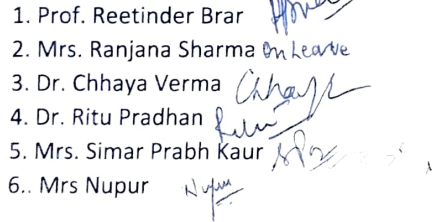 1. Prof. Reetinder Brar
2. Mrs. Ranjana Sharma On Leave
3. Dr. Chhaya Verma Chhaya
4. Dr. Ritu Pradhan
5. Mrs. Simar Prabh Kaur
6.. Mrs Nupur Nupur